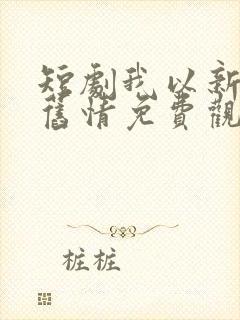 短劇我以新
舊情免費觀
桩桩